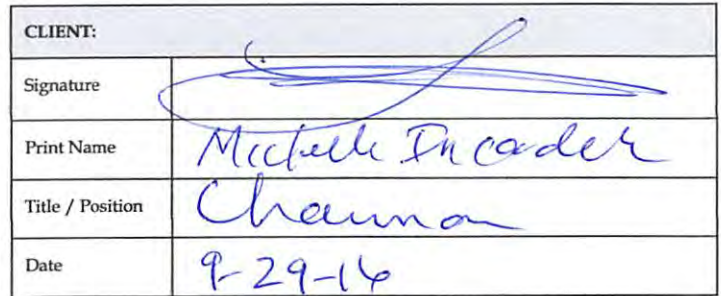 CLIENT:
Signature
Print Name Michelle
Title / Position Chairman
Date 9-29-16